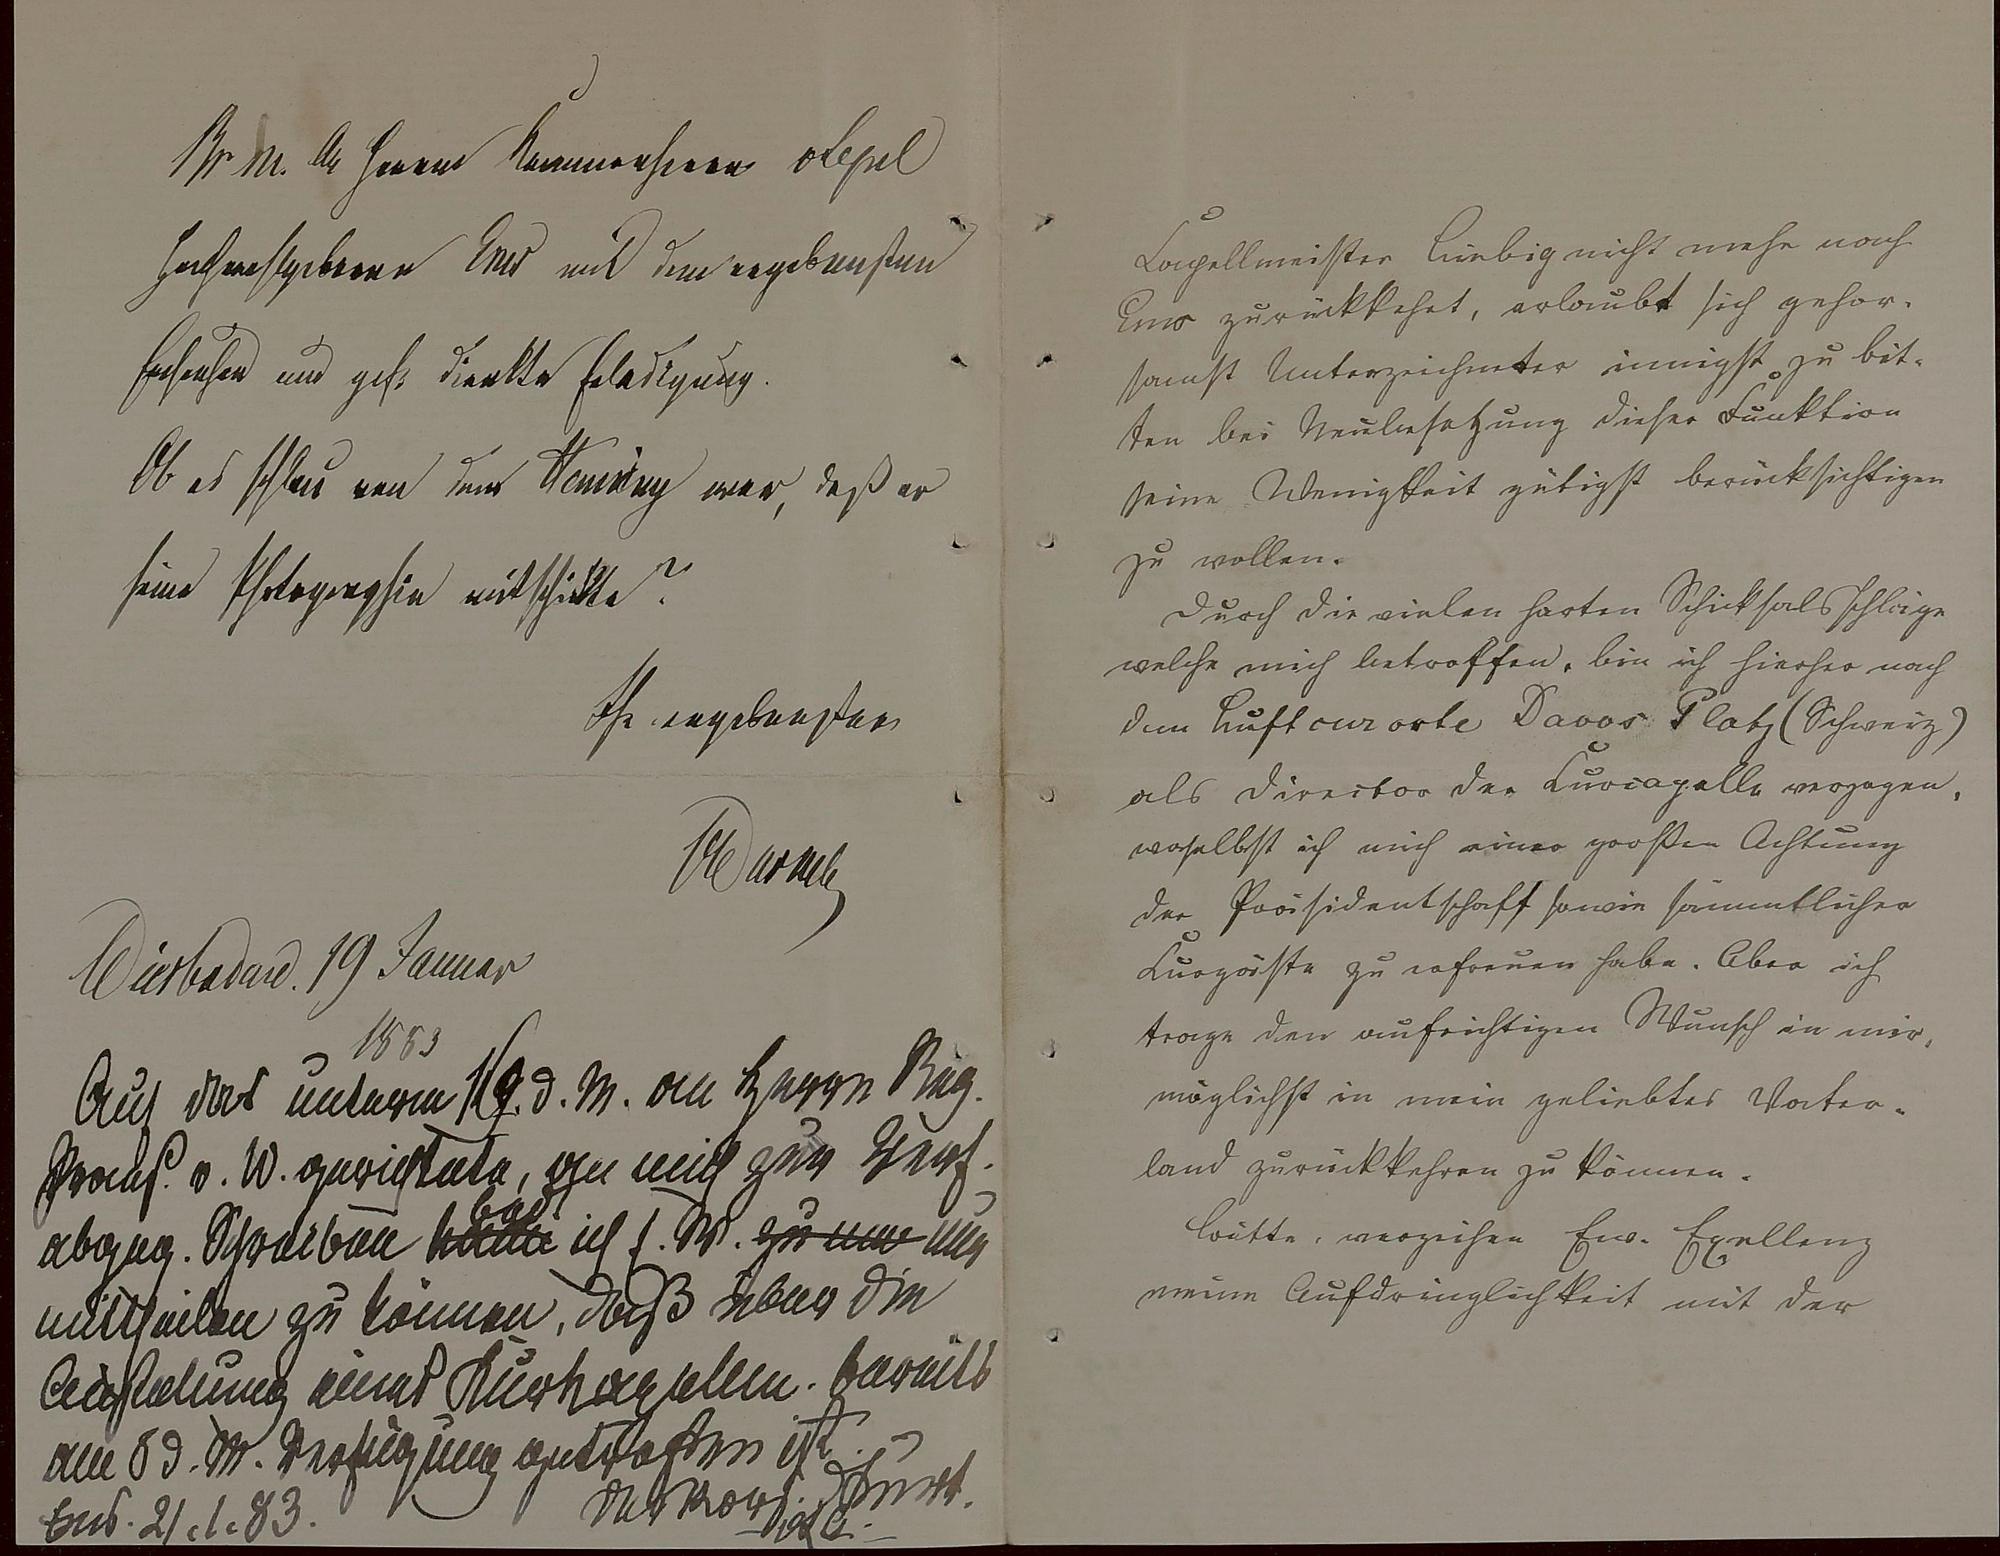 Br. m. An Herrn Kammerherrn v Lepel
Hochwohlgeboren Ems mit dem ergebensten
Ersuchen um gef. direkte Erledigung.
Ob es schlau von dem war, daß er
seine Photographie mitschickte?
Ihr ergebenster
Wurmb
Wiesbaden. 19 Januar
1883
Auf das unterm d. M. an Herrn Reg.
Praes. v. W. gerichtete, an mich zur
abgeg. Schreiben ich f. M. zu nur
mittheilen zu können, daß über die
Anstellung eines Kurkapellm. bereits
am 8 d. M. Verfügung getroffen ist.
Ems. 21.1.83.
Capellmeister Liebig nicht mehr nach
Ems zurückkehrt, erlaubt sich gehor-
samst Unterzeichneter innigst zu bit-
ten bei Neubesetzung dieser Funktion
seine Wenigkeit gütigst berücksichtigen
zu wollen.
Durch die vielen harten Schicksalsschläge
welche mich betroffen, bin ich hierher nach
dem Luftcurorte Davos Platz (Schweiz)
als Director der Curcapelle verzogen,
woselbst ich mich einer großen Achtung
der Präsidentschaft sowie sämmtlicher
Curgäste zu erfreuen habe. Aber ich
trage den aufrichtigen Wunsch in mir,
möglichst in mein geliebtes Vater-
land zurückkehren zu können.
Bitte, verzeihen Ew. Exellenz
meine Aufdringlichkeit mit der